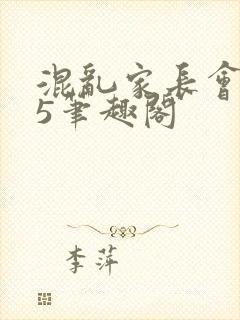 混亂家長會
5筆趣閣
李萍